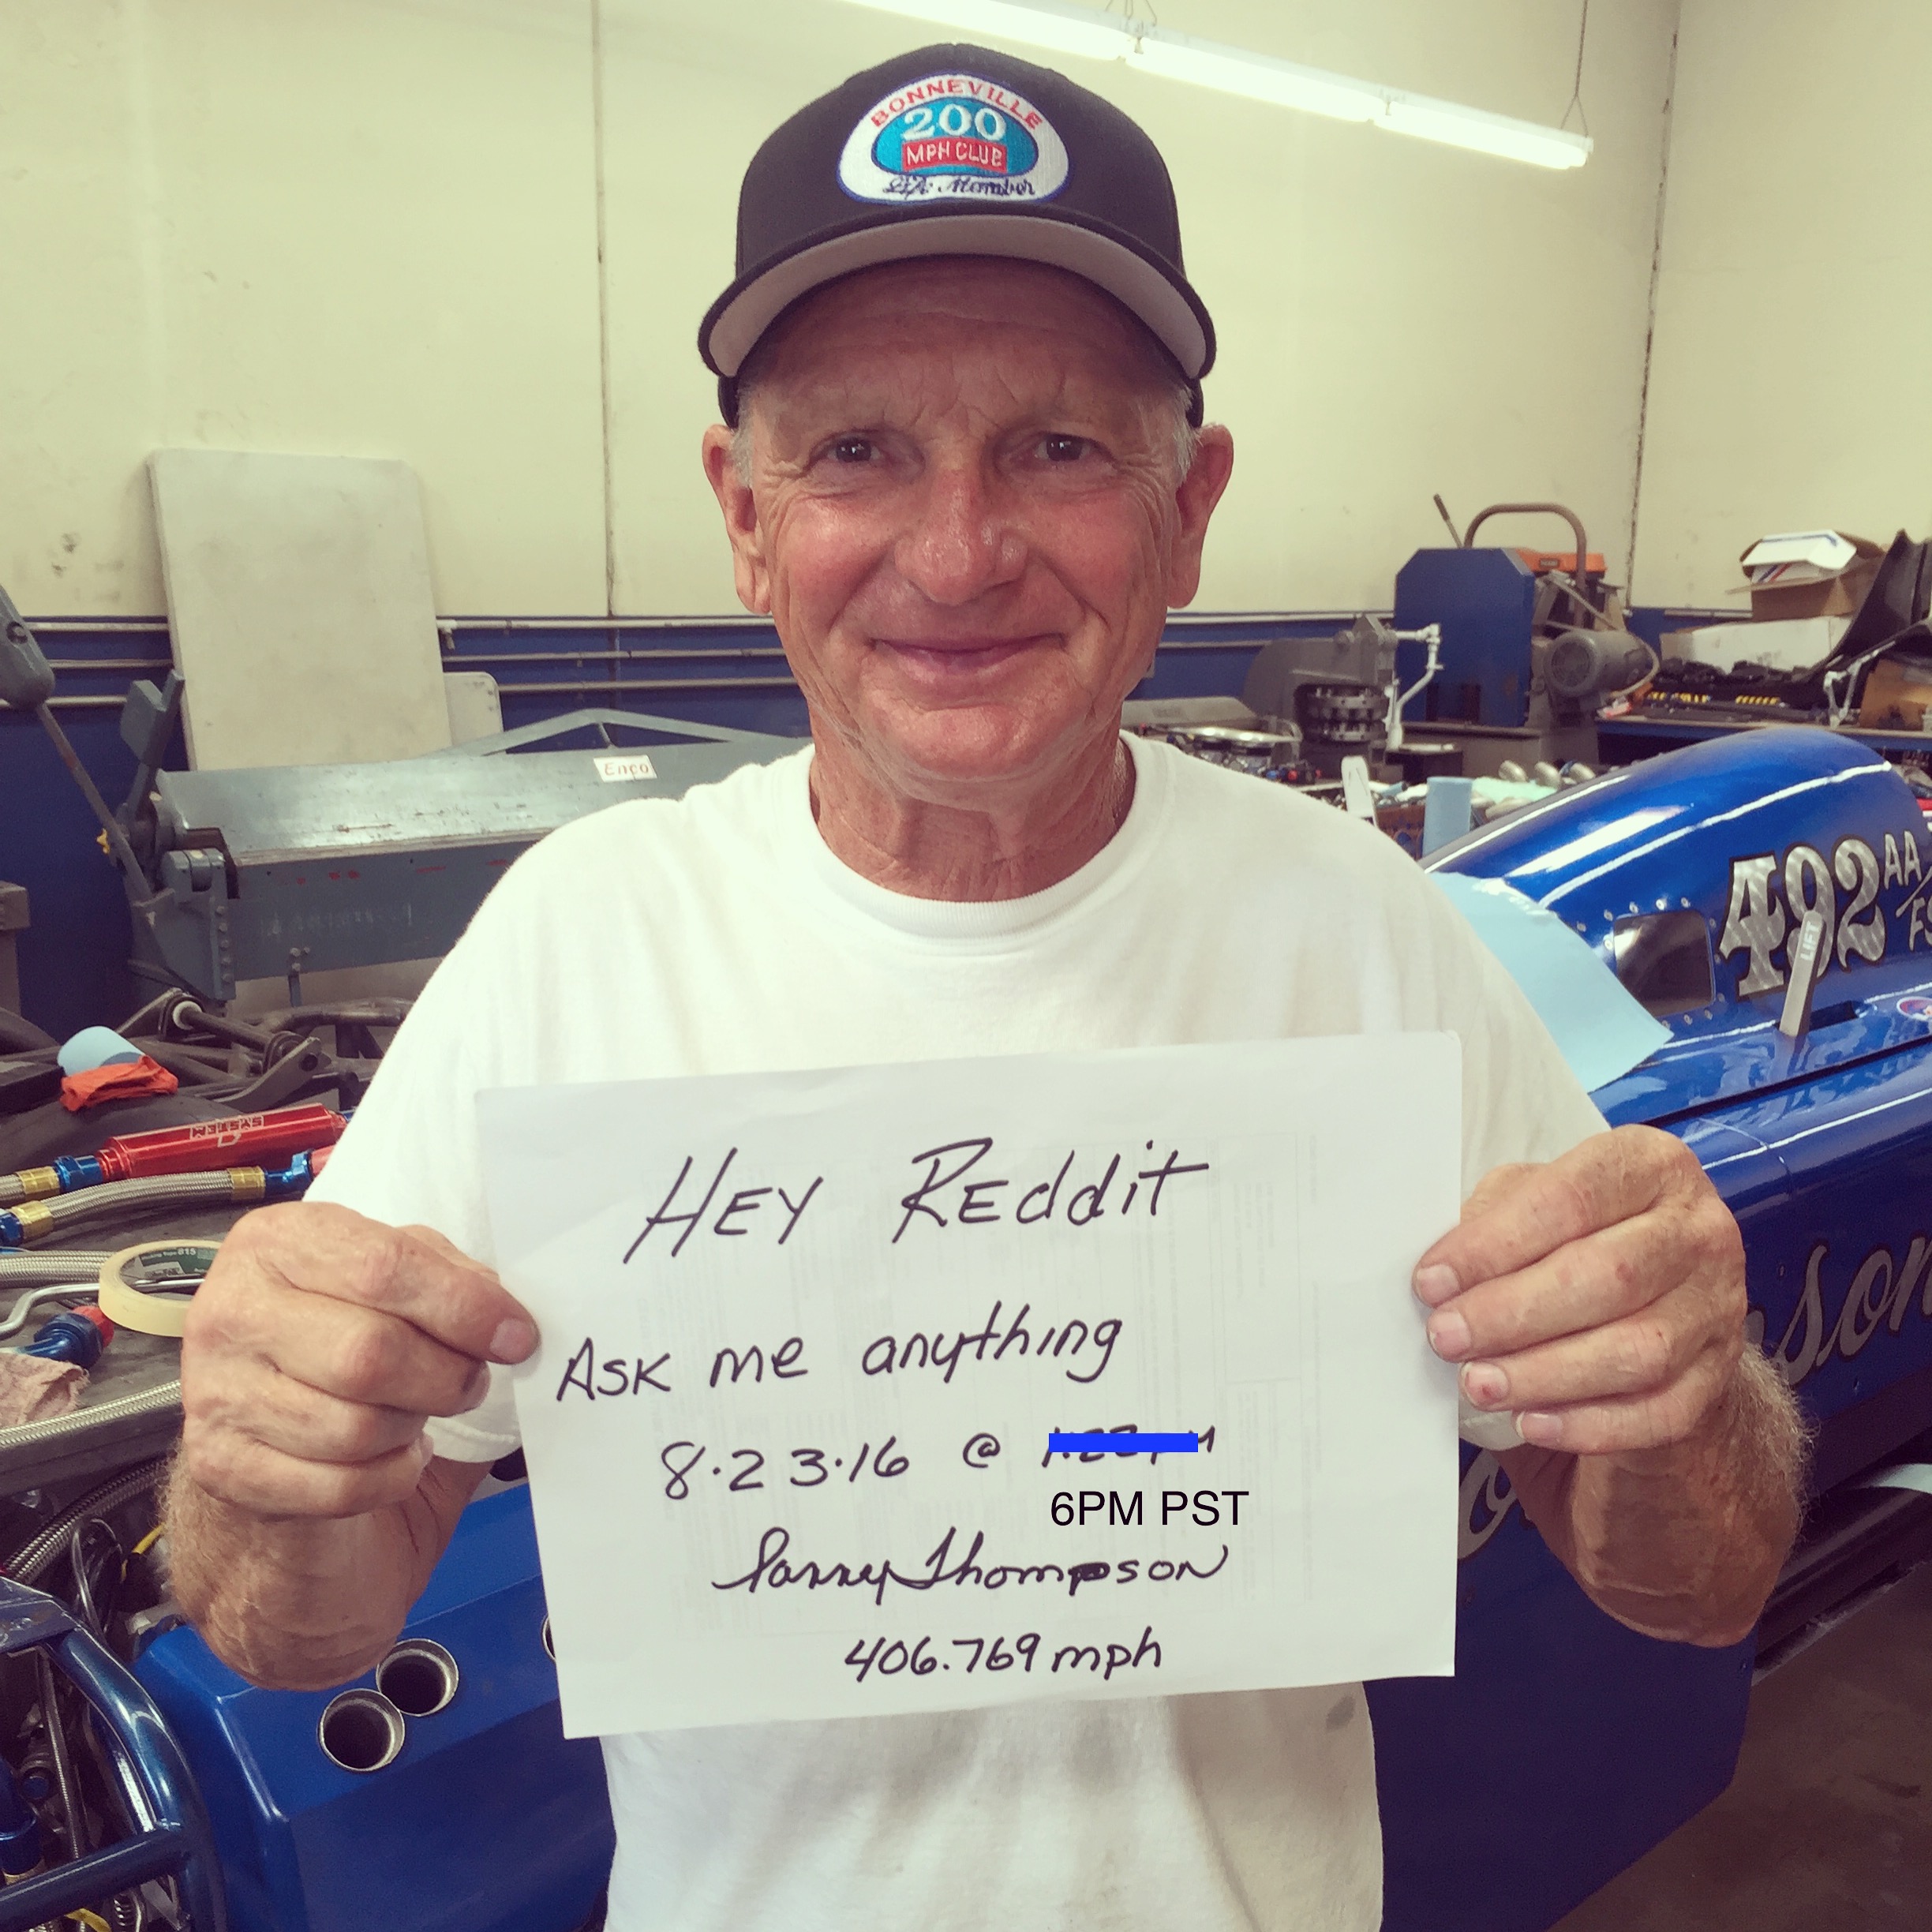 BONNEVILLE
200
MPH CLUB
Life Member
Enco
492 AA/
FS
LIFT
SYSTEM
son
HEY REddit
ASK me anything
8.23.16 @
6PM PST
Danny Thompson
406.769 mph